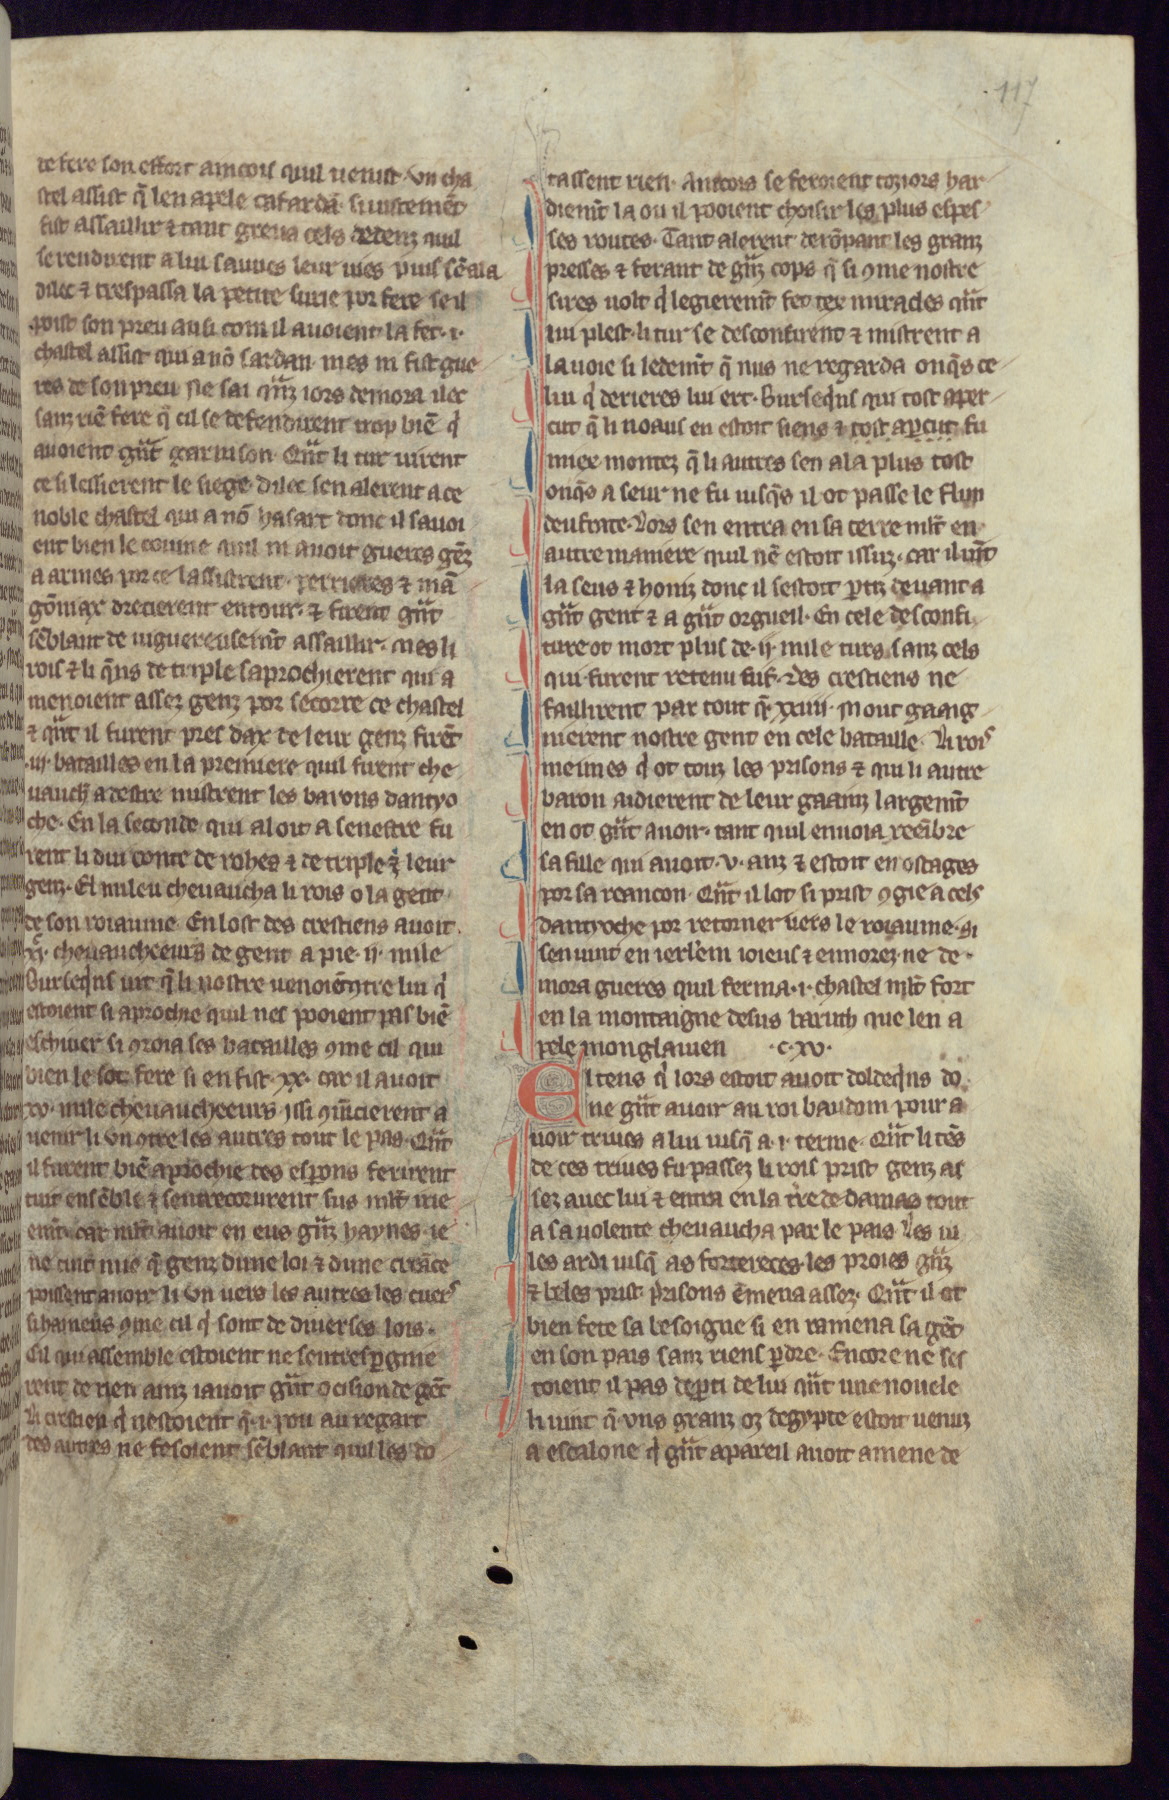 117
de fere son effort aincois quil uenist vn cha
stel assist q̃ len apele cafarda. si uistemẽt
fist assaillir ⁊ tant greua cels dedenz quil
se rendirent a lui sauues leur uies puis sẽ ala
dilec ⁊ trespassa la petite surie por fere se il
poist son preu ausi com il auoient la fet .i.
chastel assist qui a nõ sardan mes ni fist gue
res de son preu Ne sai q̃nz iors demora ilec
sanz riẽ fere q̃ cil se defendirent trop biẽ q̇
auoient g̃nt garnison Qñt li tur uirent
ce si lessierent le siege. dilec sen alerent a ce
noble chastel qui a nõ hasart donc il sauoi
ent bien le couine quil ni auoit gueres gẽz
a armes por ce lassistrent. perrieres ⁊ mã
gõniax drecierent entour. ⁊ firent g̃nt
sẽblant de uiguereusemt̃ assaillir. mes li
rois ⁊ li q̃ns de triple saprochierent qui a
menoient assez genz por secorre ce chastel
⁊ qñt il furent pres dax de leur genz firẽt
.iii. batailles en la premiere quil firent che
uauch̃ a destre mistrent les barons dantyo
che. En la seconde qui aloit a senestre fu
rent li dui conte de rohes ⁊ de triple ⁊ leur
genz. El mileu cheuaucha li rois o la gent
de son roiaume. En lost des crestiens auoit
.xi.ᶜ cheuaucheeurs de gent a pie .ii. mile
Burseq̇ns uit q̃ li nostre uenoiẽt 9tre lui q̇
estoient si aprochie quil nes pooient pas biẽ
eschiuer si 9roia ses batailles 9me cil qui
bien le sot fere si en fist .xx. car il auoit
xv. mile cheuaucheeurs issi 9mẽcierent a
uenir li vn 9tre les autres tout le pas. Qñt
il furent biẽ aprochie des esperons ferirent
tuit ensẽble ⁊ sentrecorurent sus mlt̃ irie
emt̃. car mlt̃ auoit en eus g̃nz haynes. ie
ne cuit mie q̃ genz dune loi ⁊ dune creãce
poissent auoir li vn uers les autres les cuerˢ
si haineus 9me cil q̇ sont de diuerses lois.
Cil qui assemble estoient ne sentresp̱gnie
rent de rien ainz iauoit g̃nt ocision de gẽt
Li crestien q̇ nestoient q̃ .i. pou au regart
des autres ne fesoient sẽblant quil les do
tassent rien. Aincois se feroient toziors har
diemt̃ la ou il pooient choisir les plus espes
ses routes. Tant alerent derõpant les granz
presses ⁊ ferant de g̃nz cops q̃ si 9me nostre
sires uolt q̇ legieremt̃ fet tex miracles qñt
lui plest. li tur se desconfirent ⁊ mistrent a
la uoie si ledemt̃ q̃ nus ne regarda onq̃s ce
lui q̇ derieres lui ert. Burseq̇ns qui tost aper
cut q̃ li noaus en estoit siens ⁊ tost ap̱cut fu
miex montez q̃ li autres sen ala plus tost
onq̃s a seur ne fu iusq̃s il ot passe le flun
deufrate. Lors sen entra en sa terre mlt̃ en
autre maniere quil nẽ estoit issuz. car il uĩt
la seus ⁊ honiz donc il sestoit p̱tiz deuant a
g̃nt gent ⁊ a g̃nt orgueil. En cele desconfi
ture ot mort plus de .ii. mile turs. sanz cels
qui furent retenu uif. Des crestiens ne
faillirent par tout q̃ xxiiii. Mout gaaig
nierent nostre gent en cele bataille. Li roiˢ
meimes q̇ ot touz les prisons ⁊ qui li autre
baron aidierent de leur gaainz largemt̃
en ot g̃nt auoir. tant quil enuoia reẽbre
sa fille qui auoit .v. anz ⁊ estoit en ostages
por sa reancon. Qñt il lot si prist 9gie a cels
dantyoche por retorner uers le roiaume. si
sen uint en ierl̃em ioieus ⁊ ennorez. ne de
mora gueres quil ferma .i. chastel mlt̃ fort
en la montaigne desus baruth que len a
pele monglauien .c.xv.
El tens q̇ lors estoit auoit doldeq̇ns do
ne g̃nt auoir au roi baudoin pour a
uoir triues a lui iusq̃ a .i. terme. Qñt li tẽs
de ces triues fu passez li rois prist genz as
sez auec lui ⁊ entra en la tr̃e de damas tout
a sa uolente cheuaucha par le pais Les ui
les ardi iusq̃ as fortereces. les proies g̃nz
⁊ beles prist. prisons ẽmena assez. Qñt il ot
bien fete sa besoigne si en ramena sa gẽt
en son pais sanz riens p̱dre. Encore ne ses
toient il pas dep̱ti de lui qñt une nouele
li uint q̃ vns granz oz degypte estoit uenuz
a escalone q̇ g̃nt apareil auoit amene de